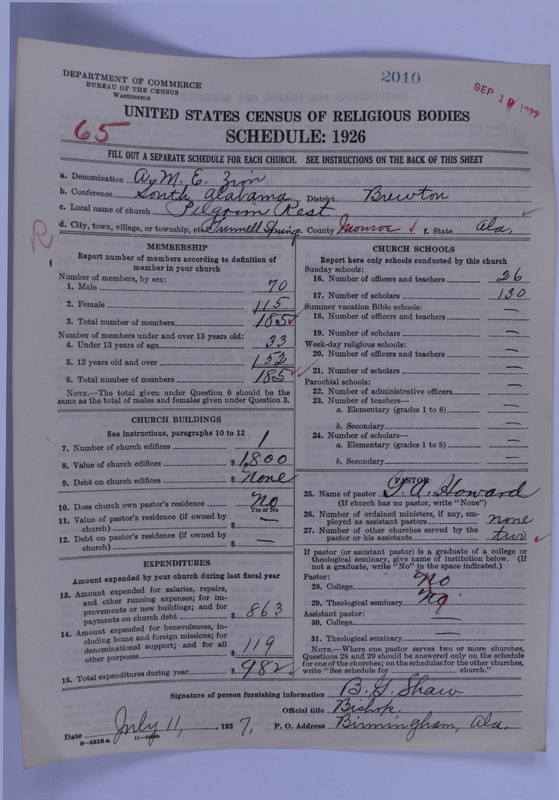 DEPARTMENT OF COMMERCE
BUREAU OF THE CENSUS
WASHINGTON
2010
SEP 1 1927
65
UNITED STATES CENSUS OF RELIGIOUS BODIES
SCHEDULE: 1926
FILL OUT A SEPARATE SCHEDULE FOR EACH CHURCH. SEE INSTRUCTIONS ON THE BACK OF THIS SHEET
a. Denomination A. M. E. Zion
b. Conference South Alabama District Brewton
c. Local name of church Pilgrim Rest
d. City, town, village, or township, etc. Tunnell Spring County Monroe f. State Ala.
R
MEMBERSHIP
Report number of members according to definition of
member in your church
Number of members, by sex:
1. Male 70
2. Female 115
3. Total number of members 185
Number of members under and over 13 years old:
4. Under 13 years of age 33
5. 13 years old and over 152
6. Total number of members 185
NOTE.—The total given under Question 6 should be the
same as the total of males and females given under Question 3.
CHURCH BUILDINGS
See instructions, paragraphs 10 to 12
7. Number of church edifices 1
8. Value of church edifices $ 1,800
9. Debt on church edifices $ None
10. Does church own pastor's residence No
Yes or No
11. Value of pastor's residence (if owned by
church) $ —
12. Debt on pastor's residence (if owned by
church) $ —
EXPENDITURES
Amount expended by your church during last fiscal year
13. Amount expended for salaries, repairs,
and other running expenses; for im-
provements or new buildings; and for
payments on church debt $ 863
14. Amount expended for benevolences, in-
cluding home and foreign missions; for
denominational support; and for all
other purposes $ 119
15. Total expenditures during year $ 982
CHURCH SCHOOLS
Report here only schools conducted by this church
Sunday schools:
16. Number of officers and teachers 26
17. Number of scholars 130
Summer vacation Bible schools:
18. Number of officers and teachers —
19. Number of scholars —
Week-day religious schools:
20. Number of officers and teachers —
21. Number of scholars —
Parochial schools:
22. Number of administrative officers —
23. Number of teachers—
a. Elementary (grades 1 to 8) —
b. Secondary —
24. Number of scholars—
a. Elementary (grades 1 to 8) —
b. Secondary —
PASTOR
25. Name of pastor A. Howard
(If church has no pastor, write "None")
26. Number of ordained ministers, if any, em-
ployed as assistant pastors none
27. Number of other churches served by the
pastor or his assistants two
If pastor (or assistant pastor) is a graduate of a college or
theological seminary, give name of institution below. (If
not a graduate, write "No" in the space indicated.)
Pastor:
28. College No
29. Theological seminary No
Assistant pastor:
30. College —
31. Theological seminary —
NOTE.—Where one pastor serves two or more churches,
Questions 28 and 29 should be answered only on the schedule
for one of the churches; on the schedules for the other churches,
write "See schedule for church."
Signature of person furnishing information B. G. Shaw
Official title Bishop.
Date July 11, 1927, P. O. Address Birmingham, Ala.